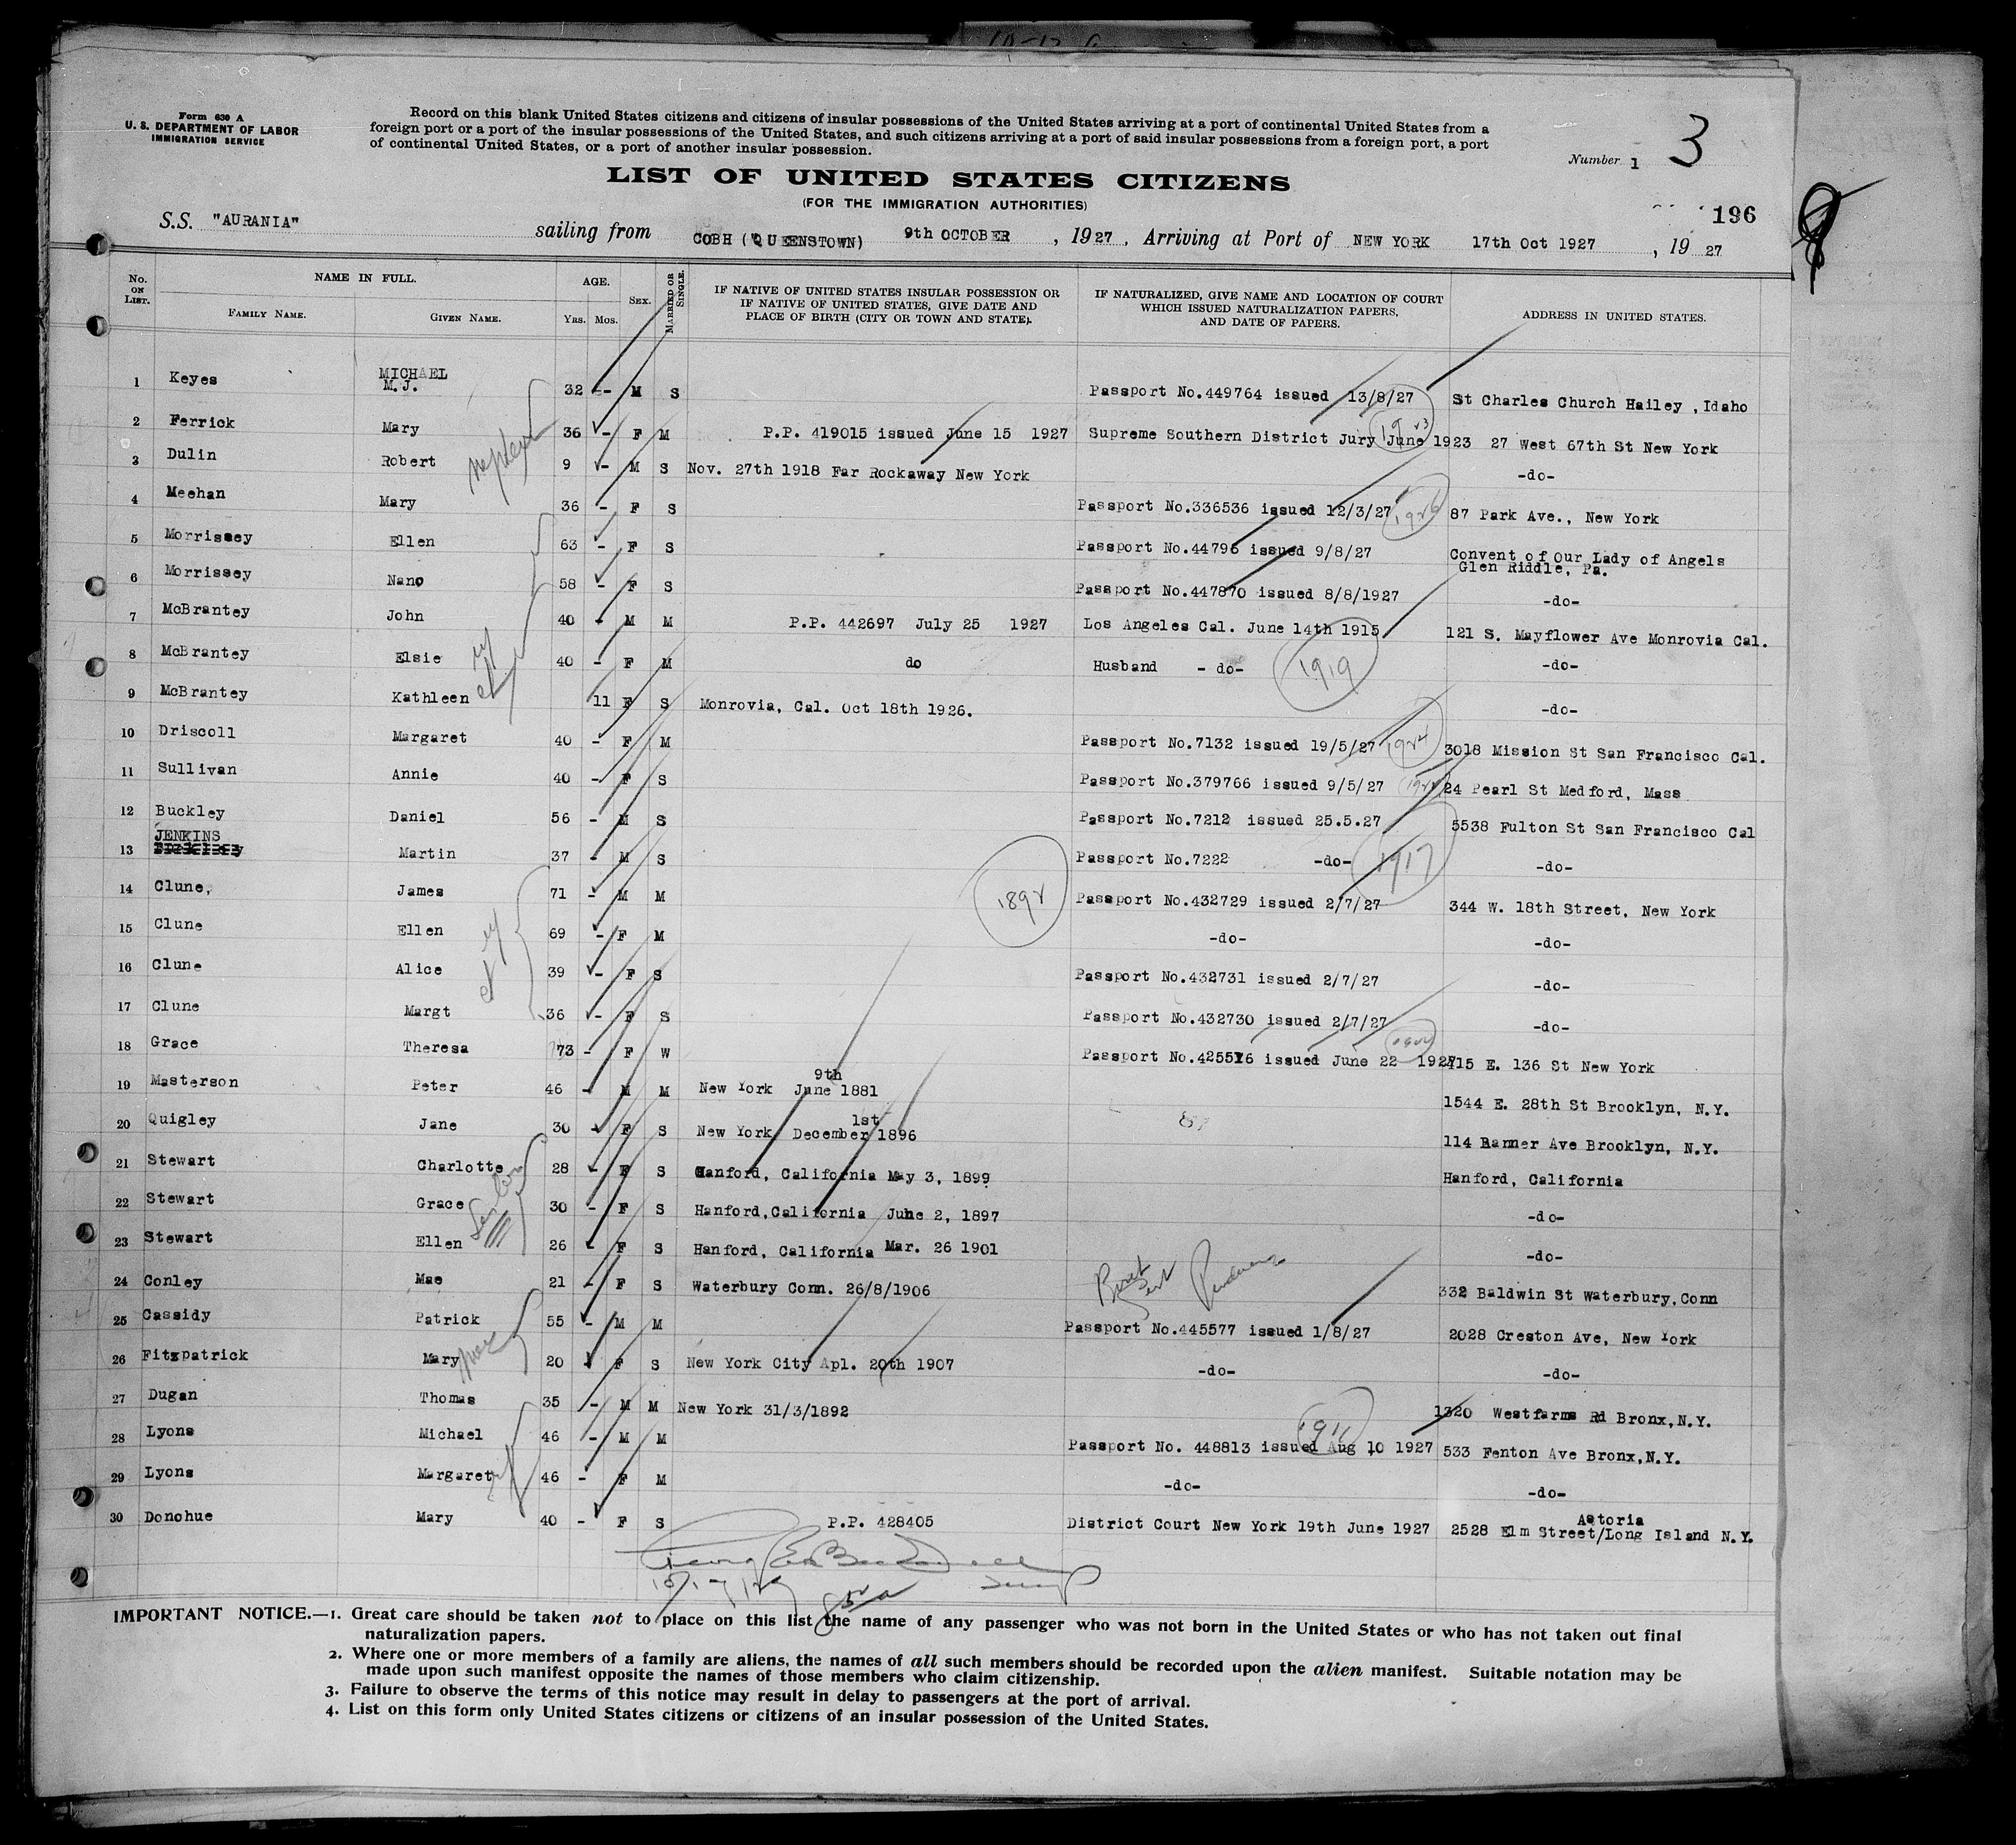 Form 630 A
U. S. DEPARTMENT OF LABOR
IMMIGRATION SERVICE
Record on this blank United States citizens and citizens of insular possessions of the United States arriving at a port of continental United States from a
foreign port or a port of the insular possessions of the United States, and such citizens arriving at a port of said insular possessions from a foreign port, a port
of continental United States, or a port of another insular possession.
Number 1 3
LIST OF UNITED STATES CITIZENS
(FOR THE IMMIGRATION AUTHORITIES)
196
S.S. "AURANIA" sailing from COBH (QUEENSTOWN) 9th OCTOBER, 1927, Arriving at Port of NEW YORK 17th Oct 1927, 19 27
No. ON LIST. NAME IN FULL. FAMILY NAME. GIVEN NAME. AGE. YRS. MOS. SEX. MARRIED OR SINGLE.
IF NATIVE OF UNITED STATES INSULAR POSSESSION OR
IF NATIVE OF UNITED STATES, GIVE DATE AND
PLACE OF BIRTH (CITY OR TOWN AND STATE).
IF NATURALIZED, GIVE NAME AND LOCATION OF COURT
WHICH ISSUED NATURALIZATION PAPERS,
AND DATE OF PAPERS.
ADDRESS IN UNITED STATES.
1 Keyes MICHAEL M.J. 32 - M S Passport No.449764 issued 13/8/27 St Charles Church Hailey, Idaho
2 Ferrick Mary 36 - F M P.P. 419015 issued June 15 1927 Supreme Southern District Jury June 1923 27 West 67th St New York
3 Dulin Robert 9 - M S Nov. 27th 1918 Far Rockaway New York -do-
4 Meehan Mary 36 - F S Passport No.336536 issued 12/3/27 1926 87 Park Ave., New York
5 Morrissey Ellen 63 - F S Passport No.44796 issued 9/8/27 Convent of Our Lady of Angels
Glen Riddle, Pa.
6 Morrissey Nano 58 - F S Passport No.447870 issued 8/8/1927 -do-
7 McBrantey John 40 - M M P.P. 442697 July 25 1927 Los Angeles Cal. June 14th 1915 121 S. Mayflower Ave Monrovia Cal.
8 McBrantey Elsie 40 - F M do Husband -do- 1919 -do-
9 McBrantey Kathleen 11 F S Monrovia, Cal. Oct 18th 1926. -do-
10 Driscoll Margaret 40 - F M Passport No.7132 issued 19/5/27 1924 3018 Mission St San Francisco Cal.
11 Sullivan Annie 40 - F S Passport No.379766 issued 9/5/27 24 Pearl St Medford, Mass
12 Buckley Daniel 56 - M S Passport No.7212 issued 25.5.27 5538 Fulton St San Francisco Cal
13 JENKINS Martin 37 - M S Passport No.7222 -do- 1917 -do-
14 Clune, James 71 - M M 1892 Passport No.432729 issued 2/7/27 344 W. 18th Street, New York
15 Clune Ellen 69 - F M -do- -do-
16 Clune Alice 39 - F S Passport No.432731 issued 2/7/27 -do-
17 Clune Margt 36 - F S Passport No.432730 issued 2/7/27 -do-
18 Grace Theresa 73 - F W Passport No.425516 issued June 22 1927 415 E. 136 St New York
19 Masterson Peter 46 - M M New York June 9th 1881 1544 E. 28th St Brooklyn, N.Y.
20 Quigley Jane 30 - F S New York, December 1st 1896 114 Banner Ave Brooklyn, N.Y.
21 Stewart Charlotte 28 - F S Hanford, California May 3, 1899 Hanford, California
22 Stewart Grace 30 - F S Hanford, California June 2, 1897 -do-
23 Stewart Ellen 26 - F S Hanford, California Mar. 26 1901 -do-
24 Conley Mae 21 - F S Waterbury Conn. 26/8/1906 332 Baldwin St Waterbury, Conn
25 Cassidy Patrick 55 - M M Passport No.445577 issued 1/8/27 2028 Creston Ave, New York
26 Fitzpatrick Mary 20 - F S New York City Apl. 20th 1907 -do- -do-
27 Dugan Thomas 35 - M M New York 31/3/1892 1320 Westfarms Rd Bronx, N.Y.
28 Lyons Michael 46 - M M Passport No. 448813 issued Aug 10 1927 533 Fenton Ave Bronx, N.Y.
29 Lyons Margaret 46 - F M -do- -do-
30 Donohue Mary 40 - F S P.P. 428405 District Court New York 19th June 1927 2528 Elm Street/Astoria Long Island N.Y.
IMPORTANT NOTICE.—1. Great care should be taken not to place on this list the name of any passenger who was not born in the United States or who has not taken out final
naturalization papers.
2. Where one or more members of a family are aliens, the names of all such members should be recorded upon the alien manifest. Suitable notation may be
made upon such manifest opposite the names of those members who claim citizenship.
3. Failure to observe the terms of this notice may result in delay to passengers at the port of arrival.
4. List on this form only United States citizens or citizens of an insular possession of the United States.